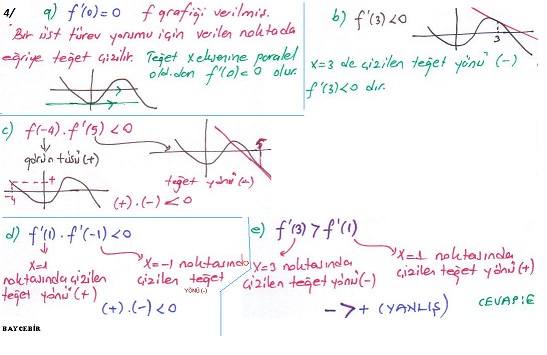 4/ a) f'(0)=0 f grafiği verilmiş.
Bir üst türev yorumu için verilen noktada
eğriye teğet çizilir. Teğet x eksenine paralel
old.dan f'(0)=0 olur.
b) f'(3)<0
3
x=3 de çizilen teğet yönü (-)
f'(3)<0 dır.
c) f(-4).f'(5)<0
görüntüsü (+)
5
teğet yönü (-)
-4 +
(+).(-)<0
d) f'(1).f'(-1)<0
x=1 noktasında çizilen teğet yönü (+)
x=-1 noktasında çizilen teğet
YÖNÜ (-)
(+).(-)<0
e) f'(3)>f'(1)
x=3 noktasında çizilen teğet yönü (-)
x=1 noktasında çizilen teğet yönü (+)
- > + (YANLIŞ)
CEVAP:E
BAYCEBİR